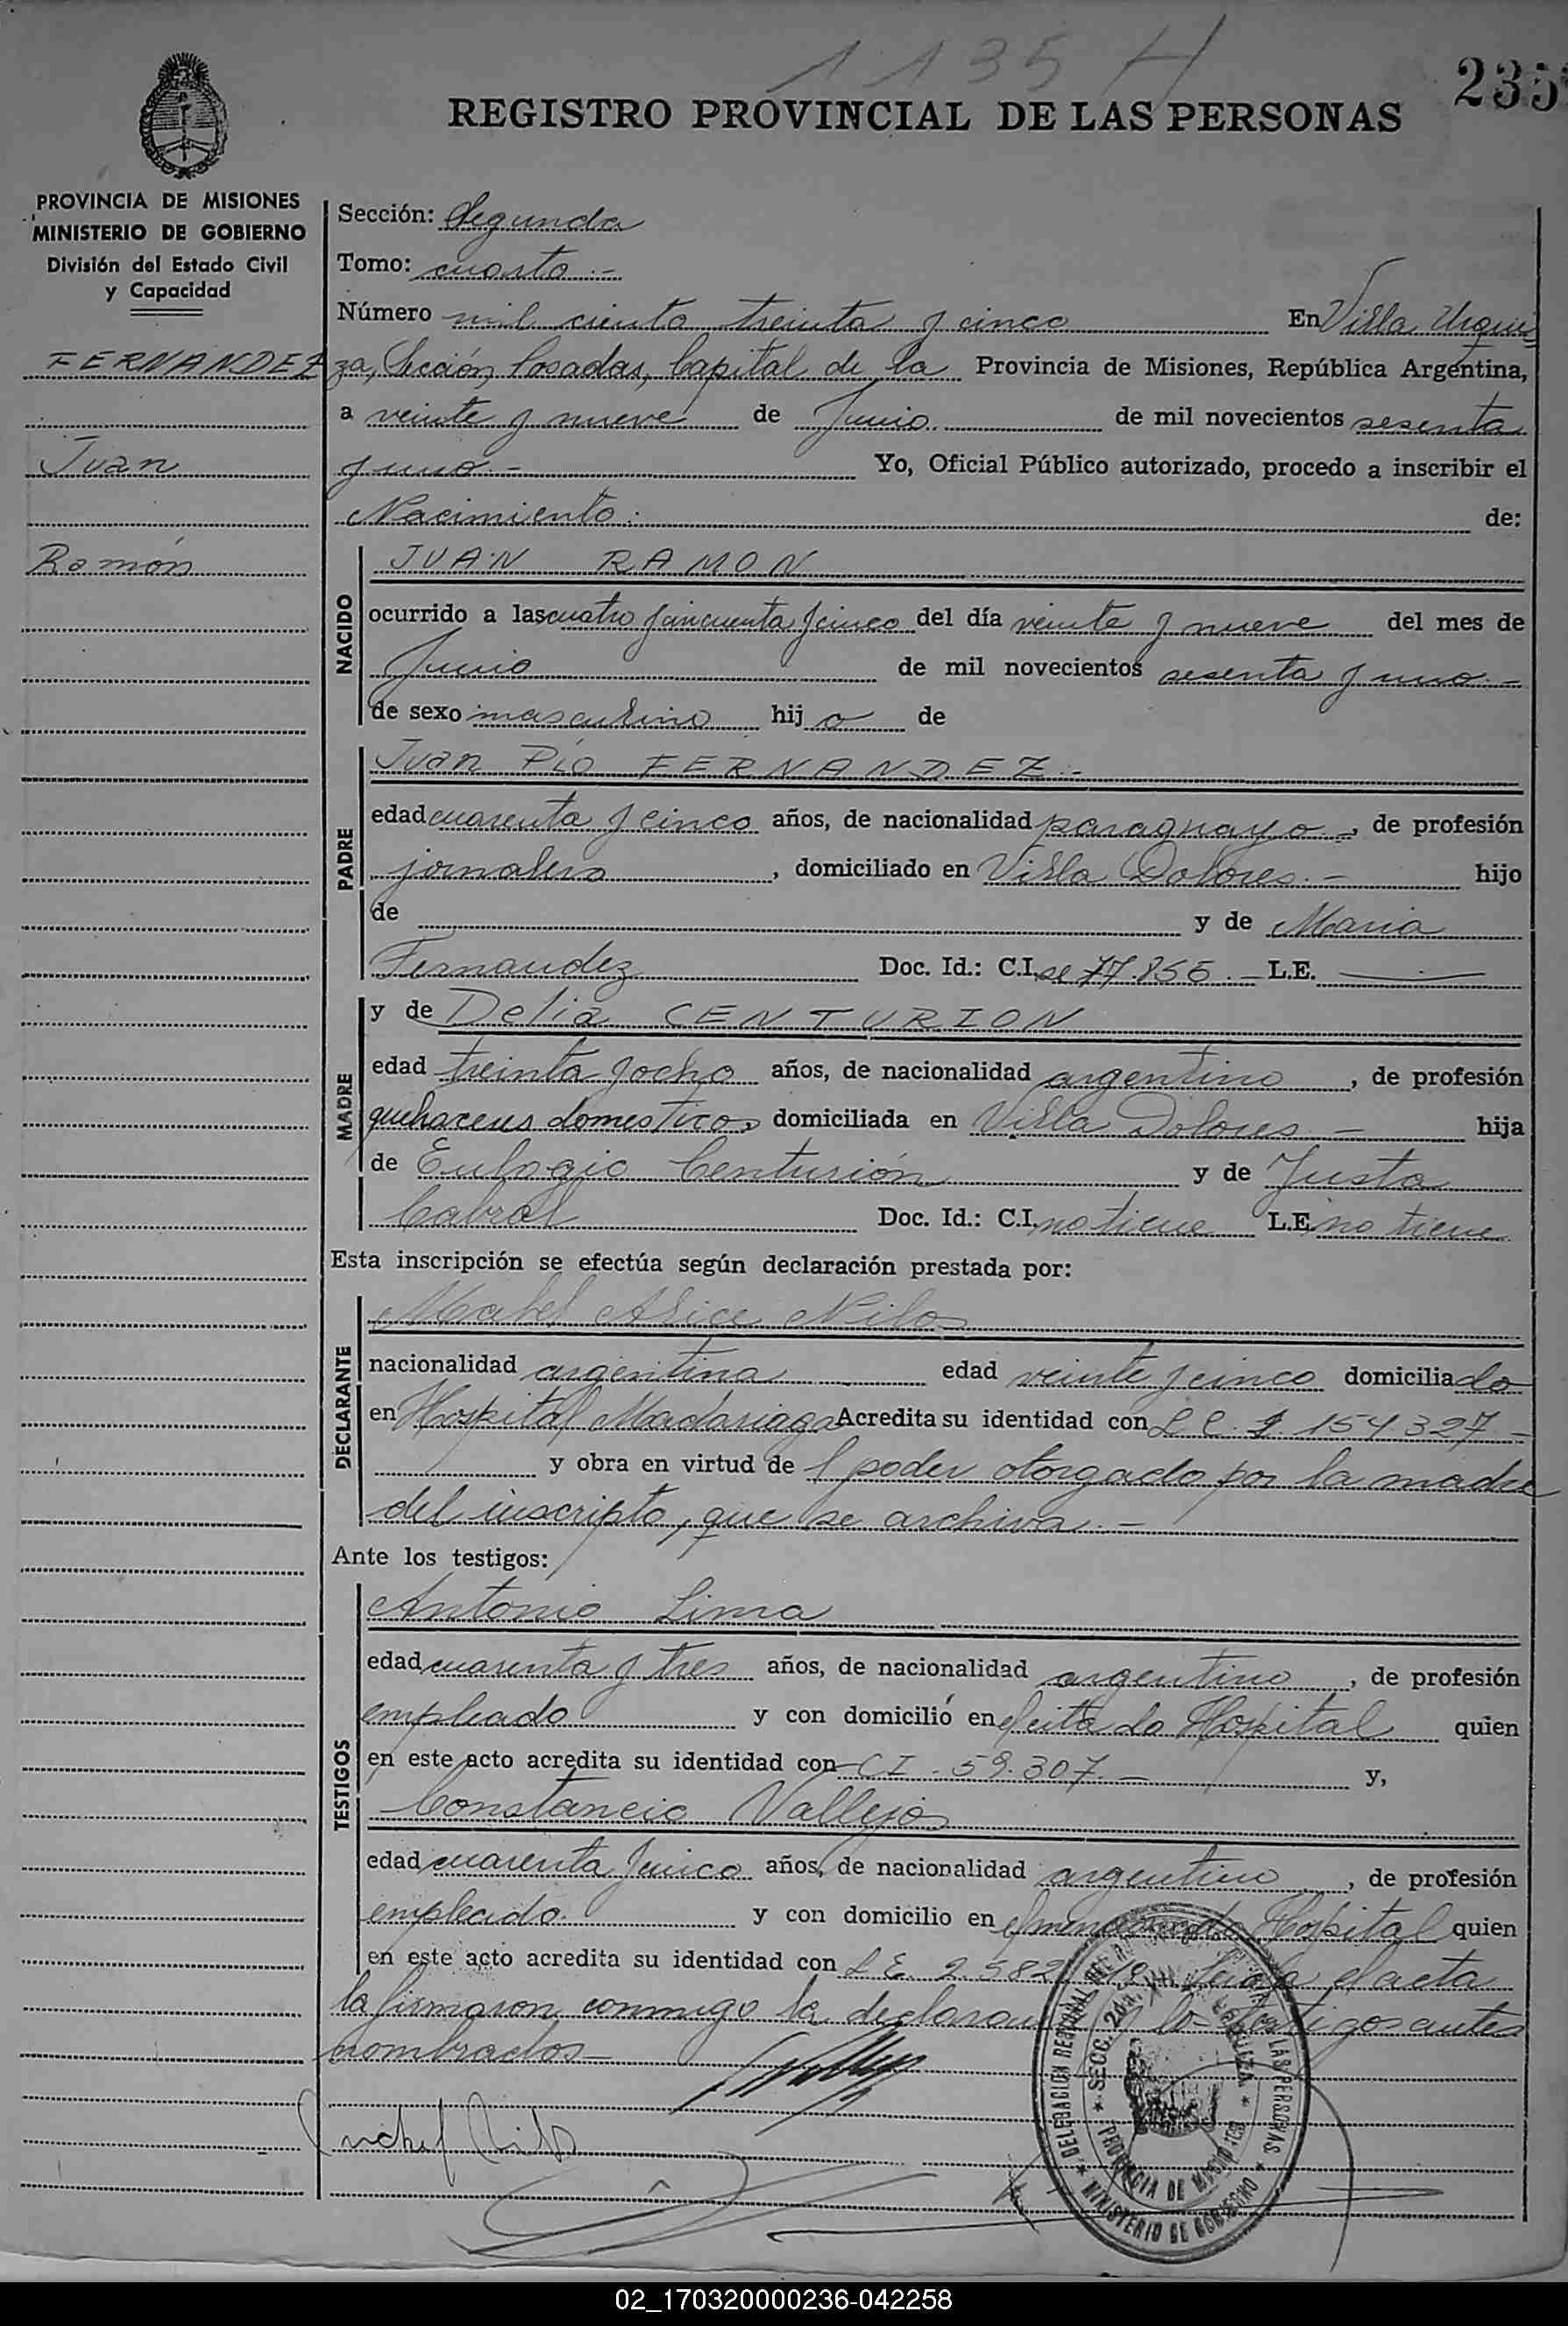 1135 H
235
REGISTRO PROVINCIAL DE LAS PERSONAS
PROVINCIA DE MISIONES
MINISTERIO DE GOBIERNO
División del Estado Civil
y Capacidad
FERNANDEZ
Juan
Ramón
Sección: Segunda
Tomo: cuarto.-
Número mil ciento treinta y cinco En Villa Urqui-
za, Sección, Posadas, Capital de la Provincia de Misiones, República Argentina,
a veinte y nueve de Junio de mil novecientos sesenta
y uno.- Yo, Oficial Público autorizado, procedo a inscribir el
Nacimiento: de:
NACIDO
JUAN RAMON
ocurrido a las cuatro y cincuenta y cinco del día veinte y nueve del mes de
Junio de mil novecientos sesenta y uno.-
de sexo masculino hij o de
PADRE
Juan Pío FERNANDEZ.-
edad cuarenta y cinco años, de nacionalidad paraguayo.-, de profesión
jornalero, domiciliado en Villa Dolores.- hijo
de y de Maria
Fernandez Doc. Id.: C.I. 77.855.- L.E.
MADRE
y de Delia CENTURION
edad treinta y ocho años, de nacionalidad argentino, de profesión
quehaceres domesticos, domiciliada en Villa Dolores - hija
de Eulogio Centurión y de Justa
Cabral Doc. Id.: C.I. no tiene L.E. no tiene
Esta inscripción se efectúa según declaración prestada por:
DECLARANTE
Mabel Alice Nilo
nacionalidad argentina edad veinte y cinco domicilia do
en Hospital Madariaga Acredita su identidad con L C. 1.154.327 -
y obra en virtud de l poder otorgado por la madre
del inscripto, que se archiva.-
Ante los testigos:
TESTIGOS
Antonio Lima
edad cuarenta y tres años, de nacionalidad argentino, de profesión
empleado y con domicilio en el citado Hospital quien
en este acto acredita su identidad con CI. 59.307.- y,
Constancio Vallejos
edad cuarenta y cinco años, de nacionalidad argentino, de profesión
empleado y con domicilio en el mencionado Hospital quien
en este acto acredita su identidad con L E. 2.582 el acta
la firmaron conmigo la declarante y los testigos antes
nombrados
DELEGACION REGIONAL DE LAS PERSONAS
MINISTERIO DE GOBIERNO
SECC. 2da.
PROVINCIA DE MISIONES
02_170320000236-042258